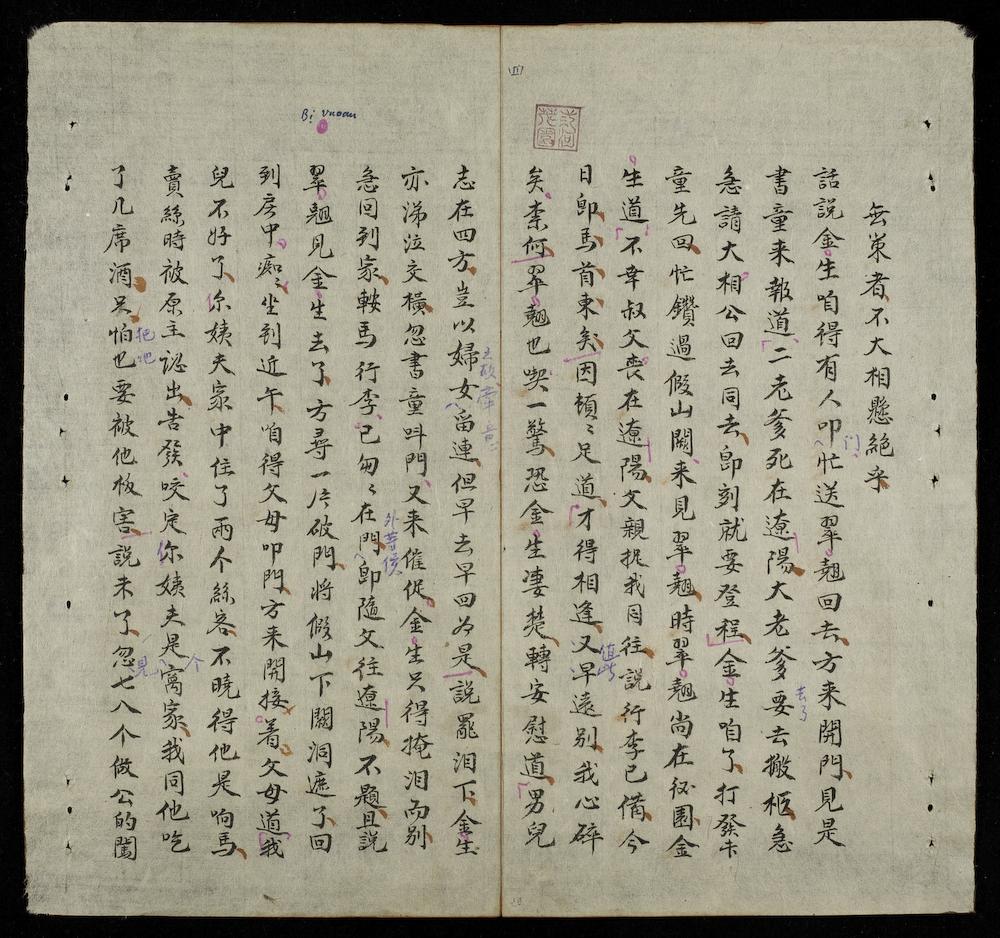 四
Bị vuoan
無策者不大相懸絕乎
話說金生咱得有人叩忙送翠翹回去方来開門見是
門
書童来報道二老爹死在遼陽大老爹要去搬柩急
去了
急請大相公回去同去即刻就要登程金生咱了打發書
童先回忙鑽過假山闕来見翠翹時翠翹尚在後園金
生道不幸叔父喪在遼陽父親捉我同往說行李已備今
日即馬首東矣因頓〻足道才得相逢又早遠別我心碎
值此
矣柰何翠翹也喫一驚恐金生凄楚轉安慰道男兒
志在四方豈以婦女留連但早去早回為是說罷泪下金生
亦涕泣交橫忽書童呌門又来催促金生只得掩泪而別
急回到家鞍馬行李已匆〻在門即隨父往遼陽不題且說
外等候
翠翹見金生去了方尋一片破門將假山下闕洞遮了回
到房中痴〻坐到近午咱得父母叩門方来開接着父母道我
兒不好了你姨夫家中住了兩个絲客不曉得他是响馬
賣絲時被原主認出告發咬定你姨夫是窩家我同他吃
你
个
了几席酒只怕也要被他板害說未了忽七八个做公的闖
把他
見